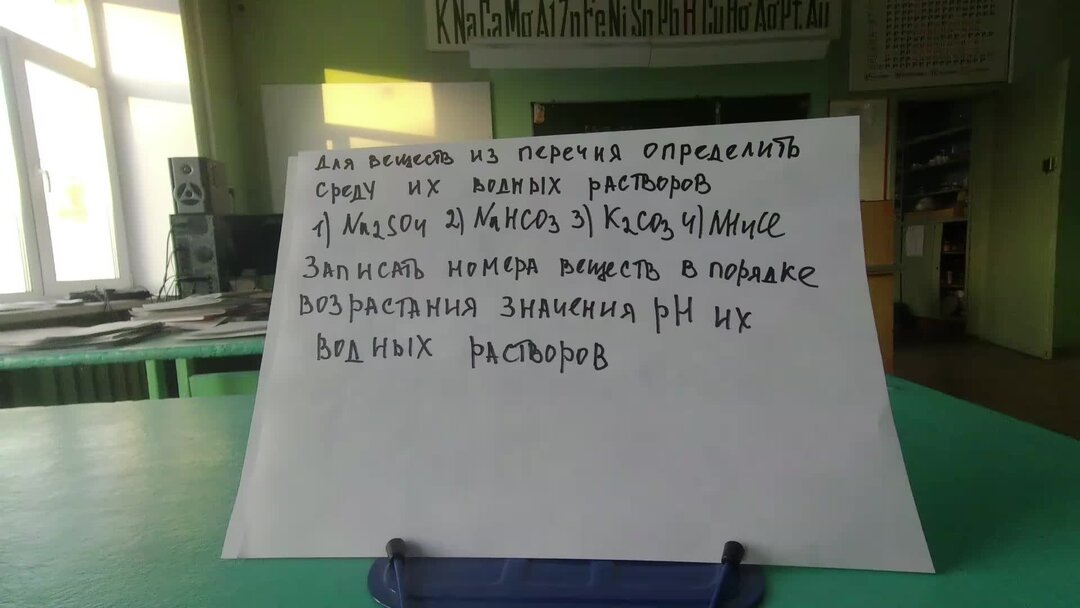 K Na Ca Mg Al Zn Fe Ni Sn Pb H Cu Hg Ag Pt Au
Для веществ из перечня определить
среду их водных растворов
1) Na2SO4 2) NaHCO3 3) K2CO3 4) NH4Cl
Записать номера веществ в порядке
возрастания значения pH их
водных растворов